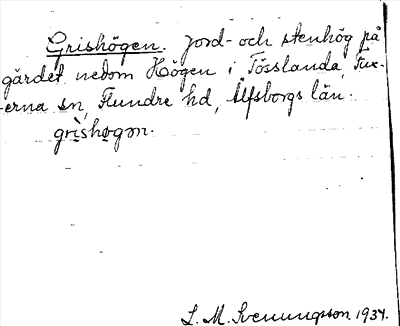 Grishögen. Jord- och stenhög på
gärdet nedom Högen i Tösslanda, Fux-
erna sn, Flundre hd, Älfsborgs län.
grìshøgən.
L. M. Svenungsson 1934.